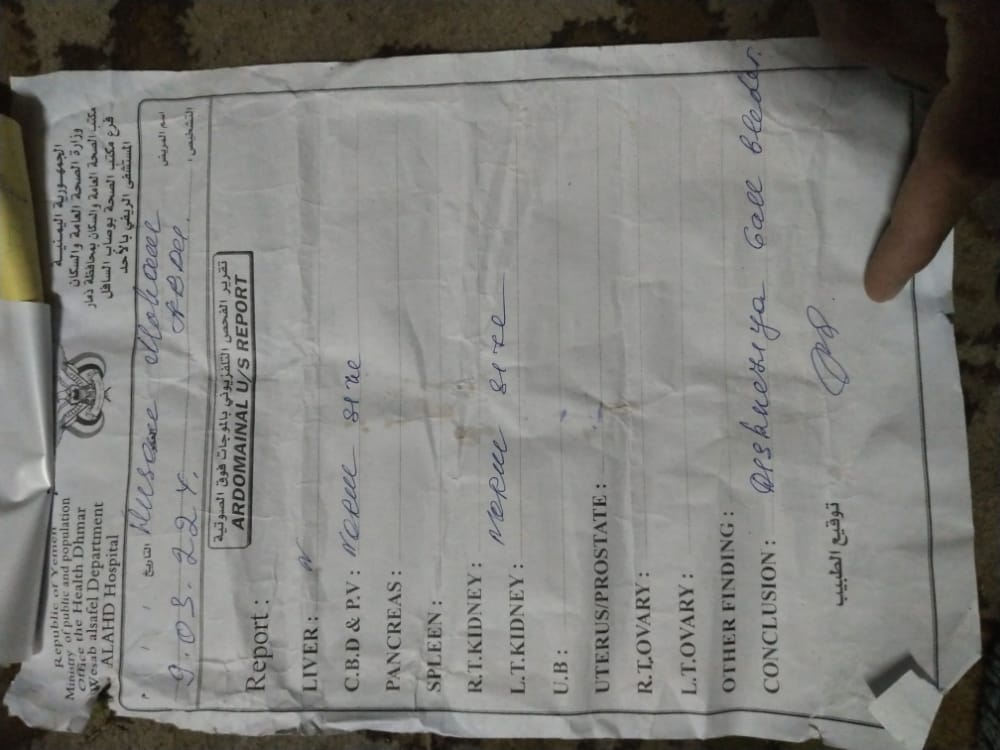 Republic of Yemen
Ministry of public and population
Office the Health Dhmar
Wesab alsafel Department
ALAHD Hospital
الجمهورية اليمنية
وزارة الصحة العامة والسكان
مكتب الصحة العامة والسكان بمحافظة ذمار
فرع مكتب الصحة بوصاب السافل
المستشفى الريفي بالأحد
م / / التاريخ
اسم المريض
9.03.22
التشخيص :
تقرير الفحص التلفزيوني بالموجات فوق الصوتية
ARDOMAINAL U/S REPORT
Report :
LIVER : N
C.B.D & P.V : size
PANCREAS :
SPLEEN :
R.T.KIDNEY :
L.T.KIDNEY : size
U.B :
UTERUS/PROSTATE :
R.T,OVARY :
L.T.OVARY :
OTHER FINDING :
CONCLUSION : Diskneziya Gall bleder.
توقيع الطبيب